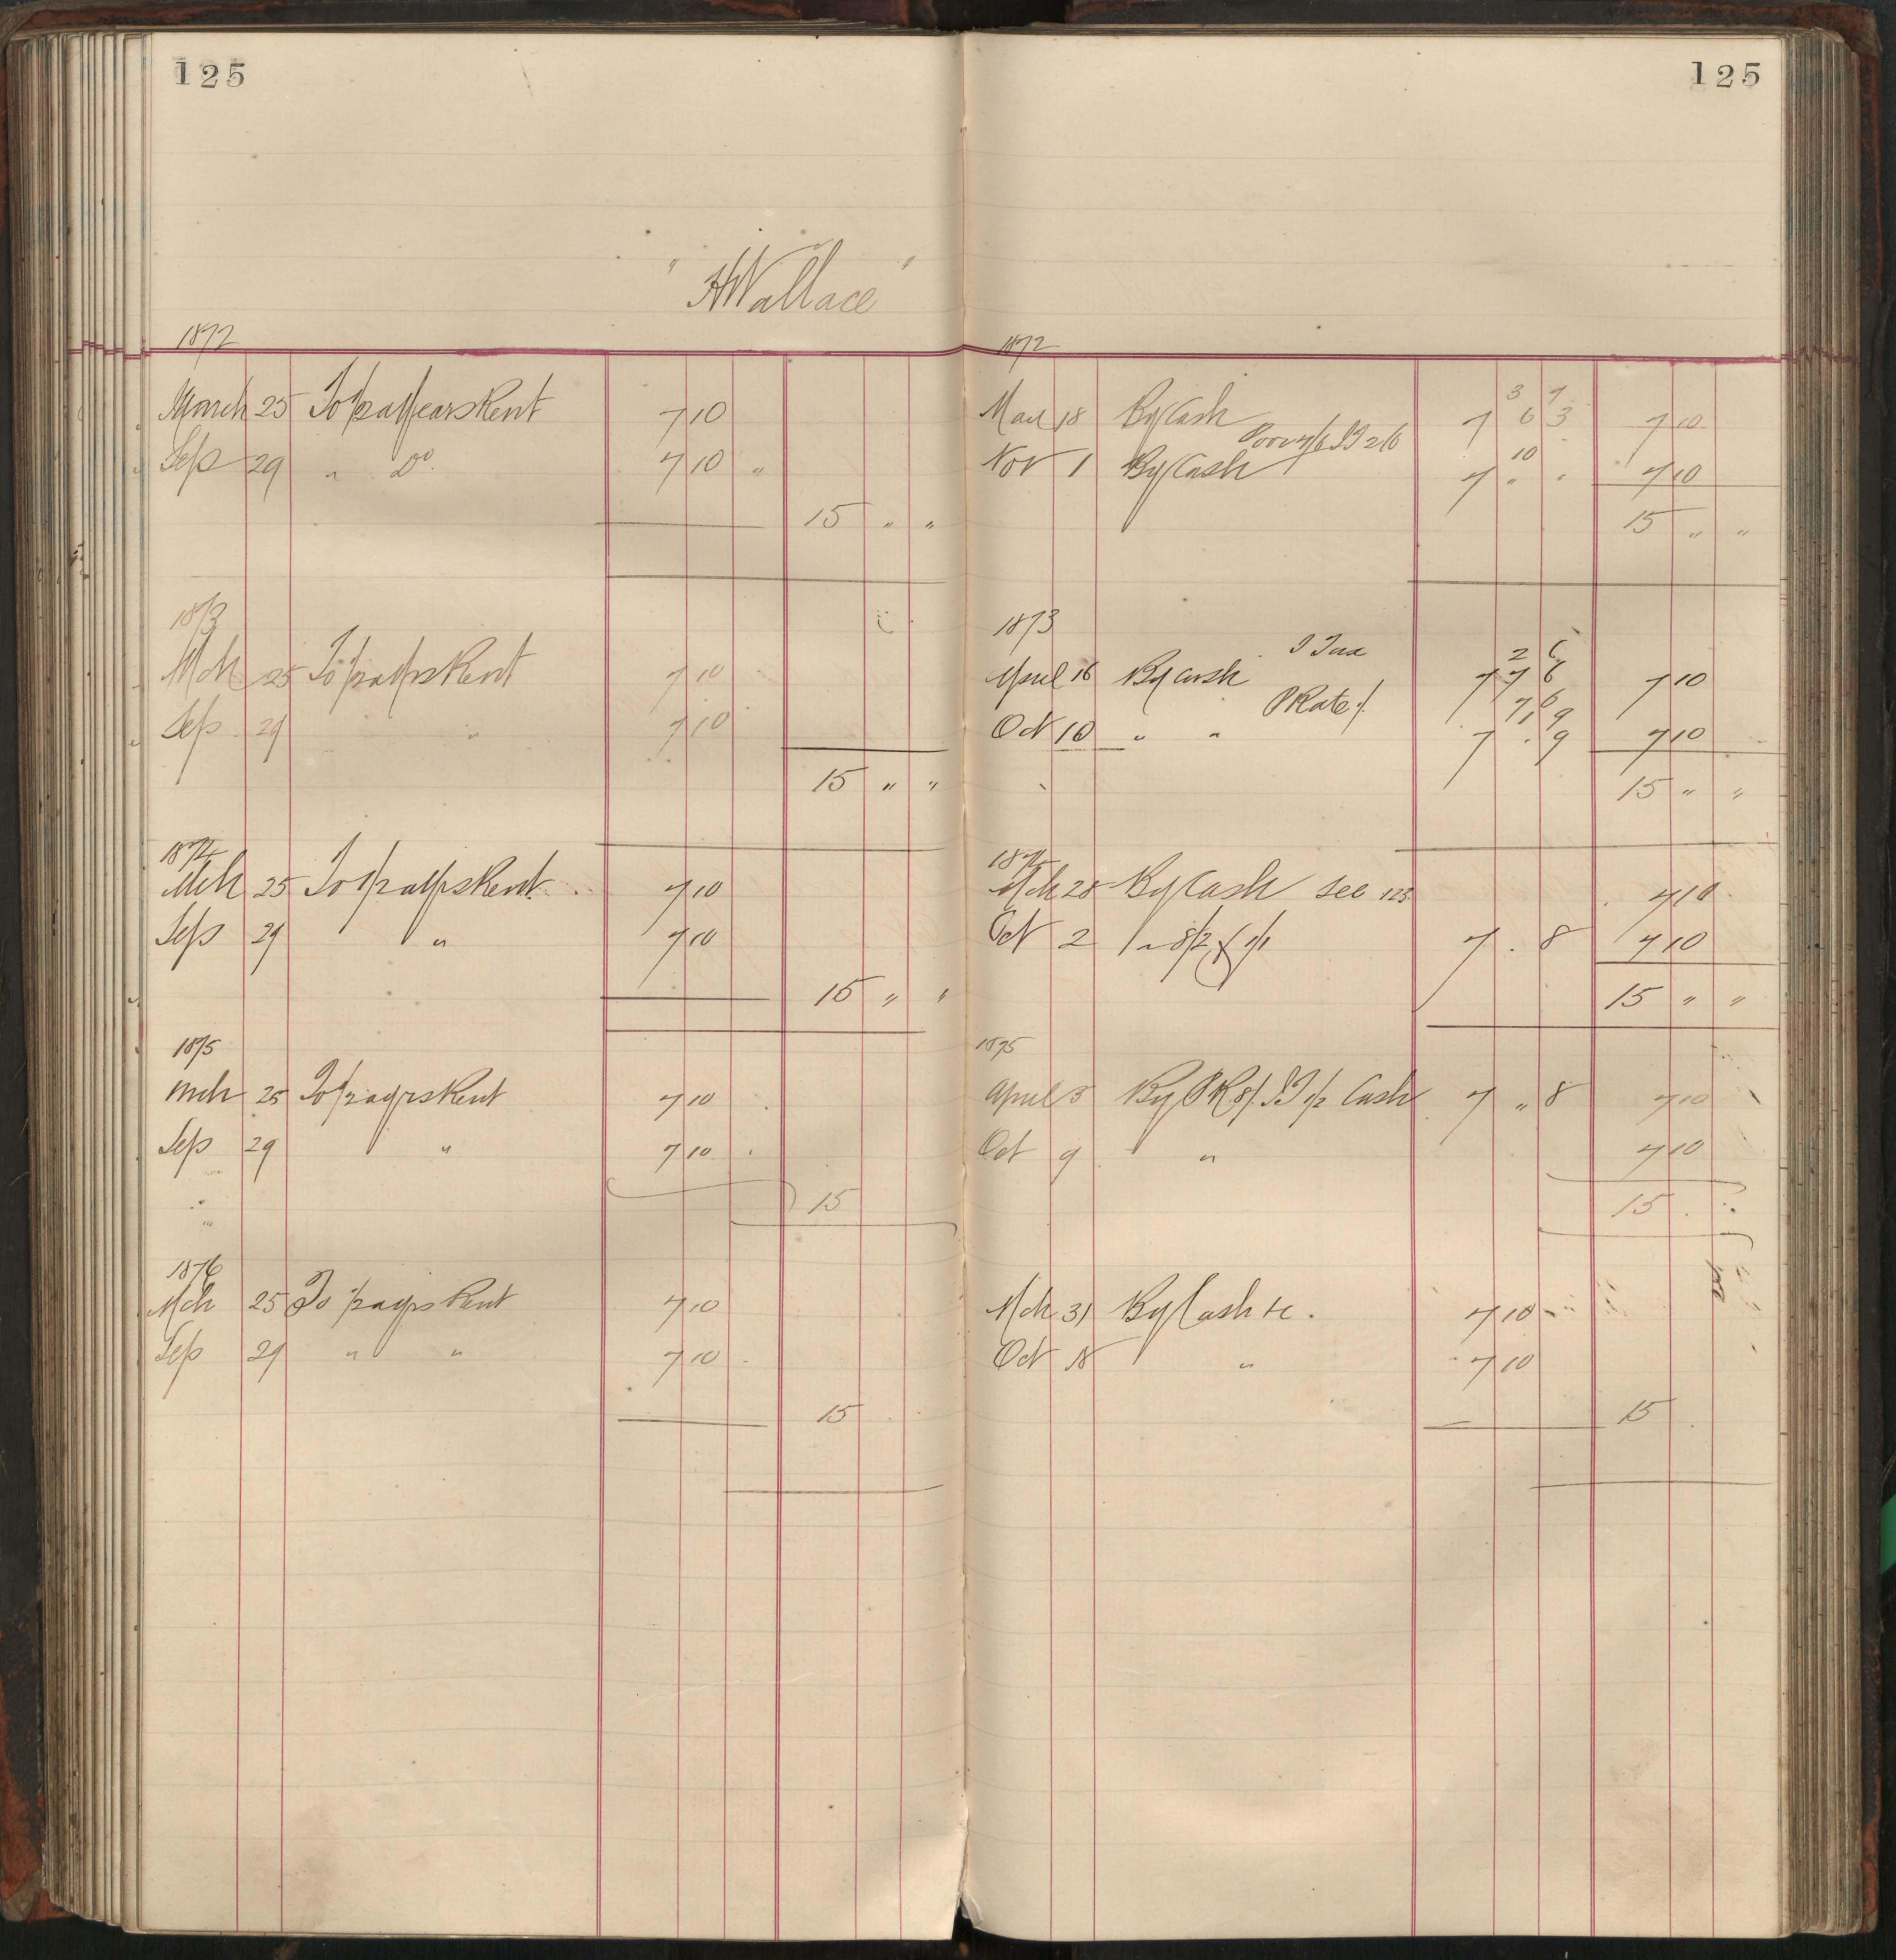 125
"HWallace"
1872
March 25 To 1/2 a Years Rent 7 10
Sep 29 " Do 7 10 "
15 " "
1873
Mch 25 To 1/2 a yrs Rent 7 10
Sep 29 " 7 10
15 " "
1874
Mch 25 To 1/2 a yrs Rent 7 10
Sep 29 " 7 10
15 " "
1875
Mch 25 To 1/2 a yrs Rent 7 10
Sep 29 " 7 10
15
1876
Mch 25 To 1/2 a yrs Rent 7 10
Sep 29 " " 7 10
15
125
1872
3 9
Mar 18 By Cash 7 6 3 7 10
Poor 4/6 IT 2/6
10
Nov 1 By Cash 7 " " 7 10
15 " "
1873
I Tax 2 6
April 16 By Cash 7 7 6 7 10
P Rate
Oct 10 " " 7 . 9 7 10
15 " "
1874
Mch 28 By Cash see 123 7 10
Oct 2 " 8/2 & 1/1 7 . 8 7 10
15 " "
1875
April 5 By PR 8/ IT 1/2 Cash 7 " 8 7 10
Oct 9 " 7 10
15
Mch 31 By Cash &c. 7 10
Oct 18 " 7 10
15